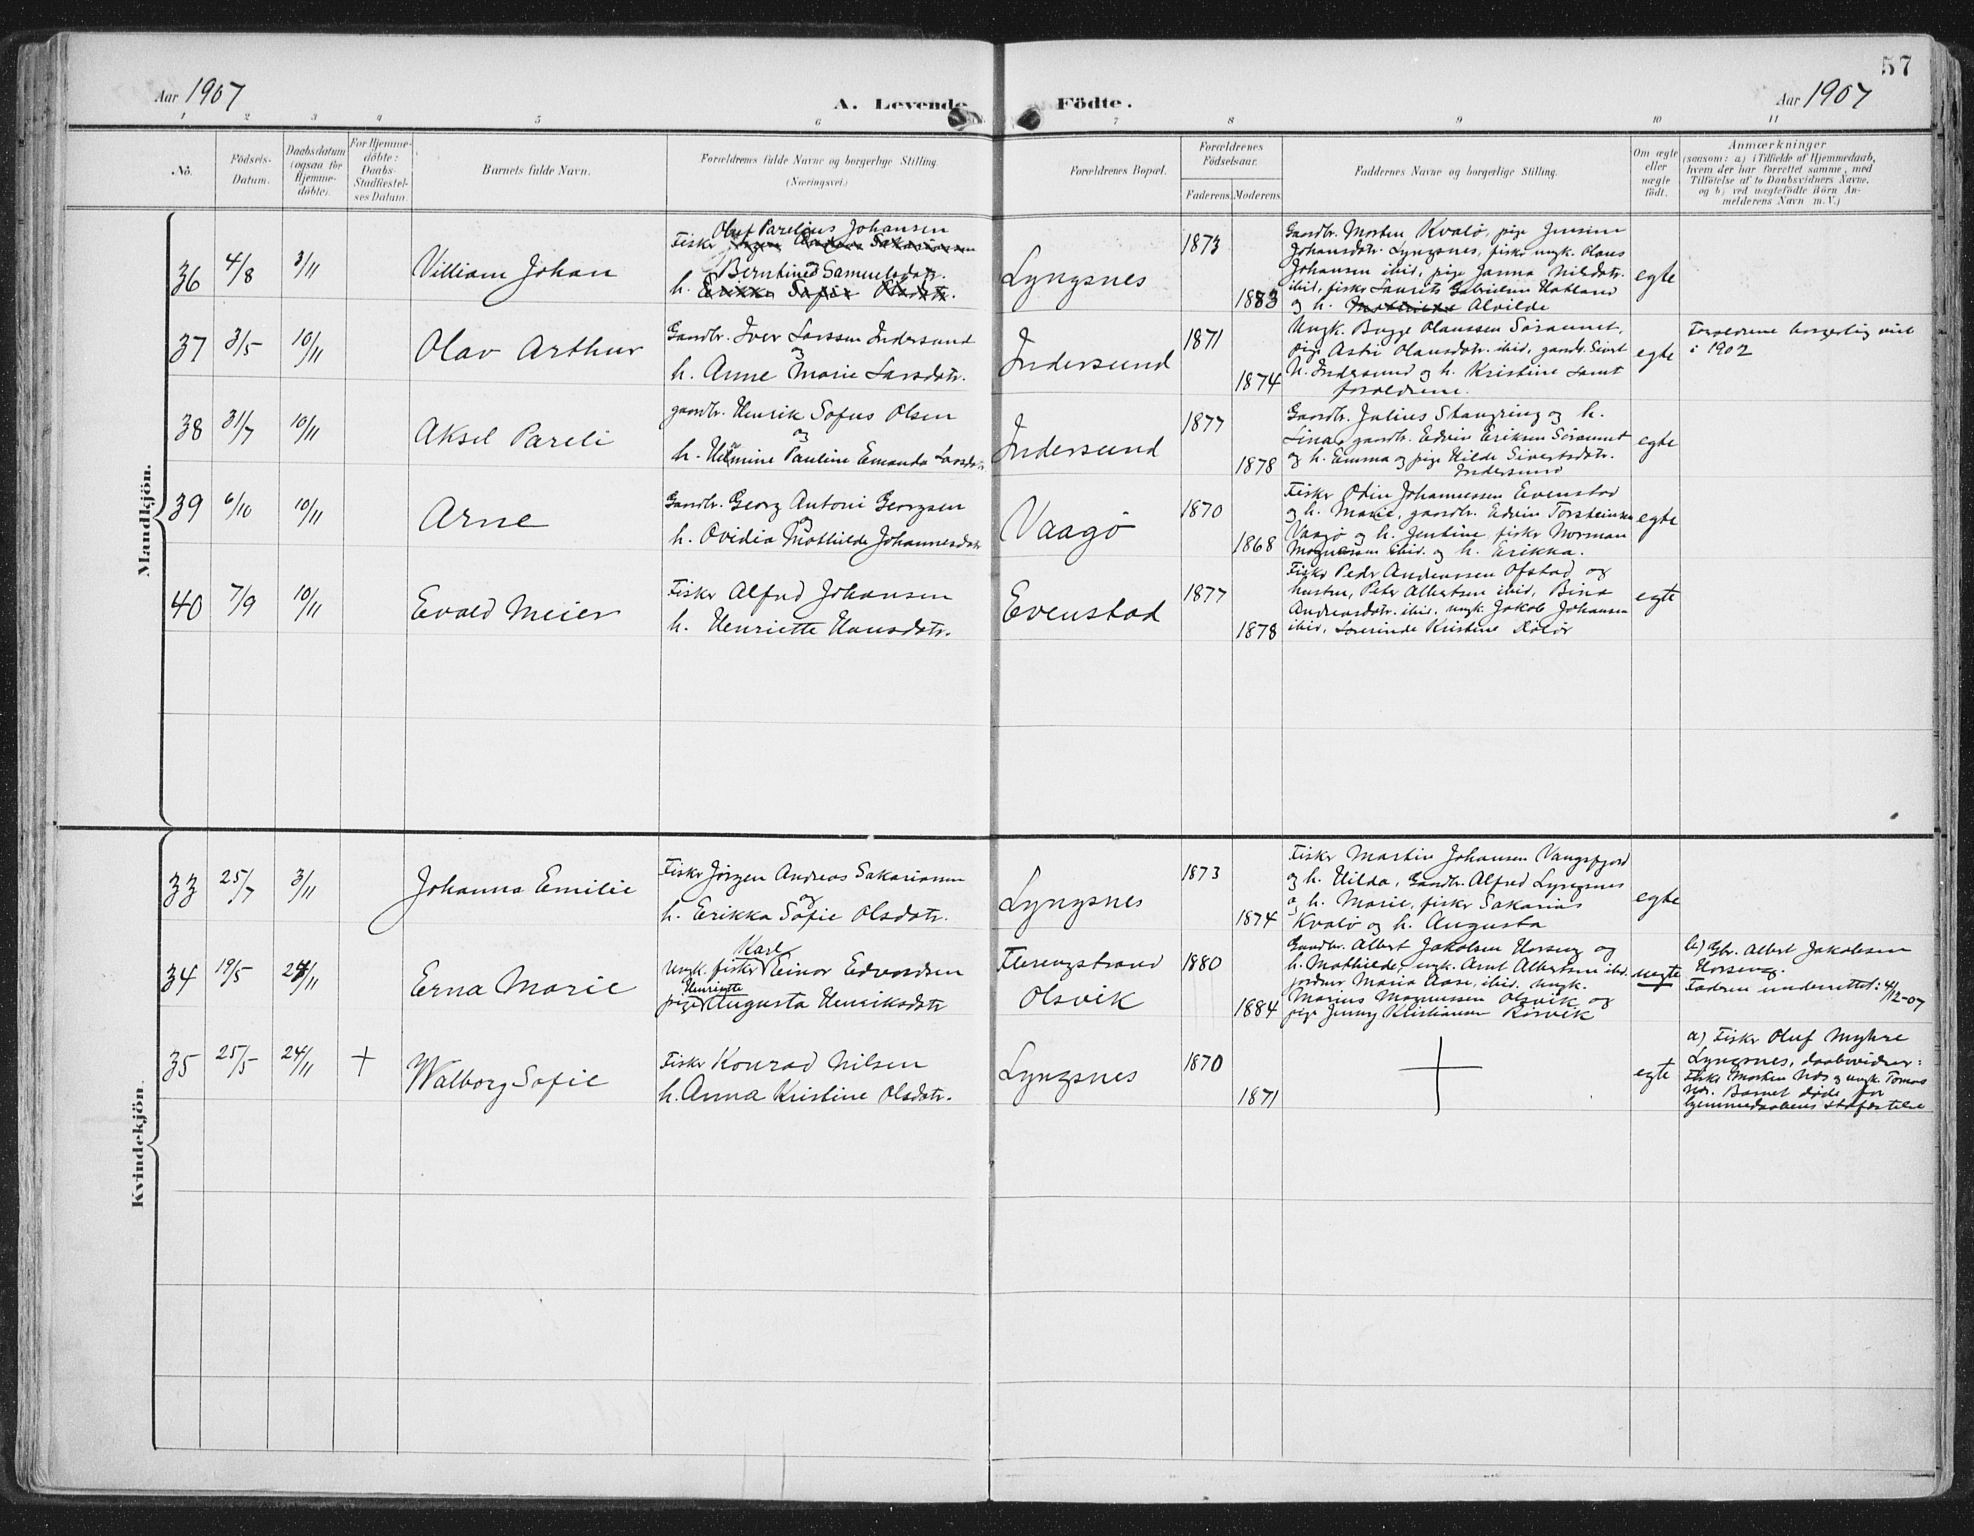 57
Aar 1907
A. Levende Födte.
Aar 1907
1 2 3 4 5 6 7 8 9 10 11
No.
Födsels-
Datum.
Daabsdatum
(ogsaa for
Hjemme-
döbte).
For Hjemme-
döbte:
Daabs-
Stadfæstel-
ses Datum.
Barnets fulde Navn.
Forældrenes fulde Navne og borgerlige Stilling.
(Næringsvei.)
Forældrenes Bopæl.
Forældrenes
Födselsaar.
Faderens. Moderens.
Faddernes Navne og borgerlige Stilling.
Om ægte
eller
uægte
födt.
Anmærkninger
(saasom: a) i Tilfælde af Hjemmedaab,
hvem der har forrettet samme, med
Tilföielse af to Daabsvidners Navne,
og b) ved uægtefödte Börn An-
melderens Navn m. V.)
Mandkjön.
36 4/8 3/11
Villiam Johan
Oluf Parelius Johansen
Fisker Jörgen Andreas Sakariassen
og
Berntine Samuelsdatr.
h. Erikka Sofie Olsdatr.
Lyngsnes
1873
1883
Gaardbr. Morten Kvalö, pige Jensine
Johansdatr. Lyngsnes, fisker ungk. Olaus
Johansen ibid, pige Janna Nilsdatr.
ibid, fisker Laurits Gabrielsen Hatland
og h. Alvilde
egte
37 3/5 10/11
Olav Arthur
Gaardbr. Iver Larssen Indersund
og
h. Anne Marie Larsdatr.
Indersund
1871
1874
Ungk. Bugge Olaussen Söraunet,
pige Astri Olausdatr. ibid, gaardbr. Sivert
N. Indersund og h. Kristine samt
forældrene.
egte
Forældrene borgerlig viet
i 1902
38 31/7 10/11
Aksel Pareli
gaardbr. Henrik Sofus Olsen
og
h. Helmine Pauline Emanda Larsdatr.
Indersund
1877
1878
Gaardbr. Julius Stangring og h.
Lina, gaardbr. Edvin Eriksen Söraunet
og h. Emma og pige Hilde Sivertsdatr.
Indersund
egte
39 6/10 10/11
Arne
Gaardbr. Georg Antoni Georgsen
og
h. Ovidia Mathilde Johannesdatr
Vaagö
1870
1868
Fisker Odin Johannessen Evenstad
og h. Marie, gaardbr. Edvin Torsteinsen
Vaagö og h. Jentine, fisker Norman
Magnussen ibid. og h. Erikka.
egte
40 7/9 10/11
Evald Meier
Fisker Alfred Johansen
h. Henriette Hansdatr.
Evenstad
1877
1878
Fisker Peder Andreassen Ofstad og
hustru, Peter Albertsen ibid, Bina
Andreasdatr. ibid, ungk. Jakob Johansen
ibid, Kristine
egte
Kvindekjön.
33 25/7 3/11
Johanna Emilie
Fisker Jörgen Andreas Sakariassen
og
h. Erikka Sofie Olsdatr.
Lyngsnes
1873
1874
Fisker Martin Johansen Vangsfjord
og h. Hilda, Gaardbr. Alfred Lyngsnes
og h. Marie, fisker Sakarias
Kvalö og h. Augusta
egte
34 19/5 24/11
Erna Marie
Karl
Ungk. fisker Einar Edvardsen
Henriette
pige Augusta Henriksdatr
Flerengstrand
Olsvik
1880
1884
Gaardbr. Albert Jakobsen Horseng og
h. Mathilde, ungk. Arnt Albertsen ibid.
jordmor Maria Aase, ibid. ungk.
Marius Magnussen Olsvik og
pige Jenny Kristiansen Rörvik
uegte
b) Gbr. Albert Jakobsen
Horseng.
Faderen underrettet: 4/12-07
35 25/5 24/11 +
Walborg Sofie
Fisker Konrad Nilsen
h. Anna Kristine Olsdatr.
Lyngsnes
1870
1871
+
egte
a) Fisker Oluf Myhre
Lyngsnes, daabsvidner:
Fisker Morten Næs og ungk. Tomas
Næs. Barnet döde för
hjemmedaabens stadfæstelse